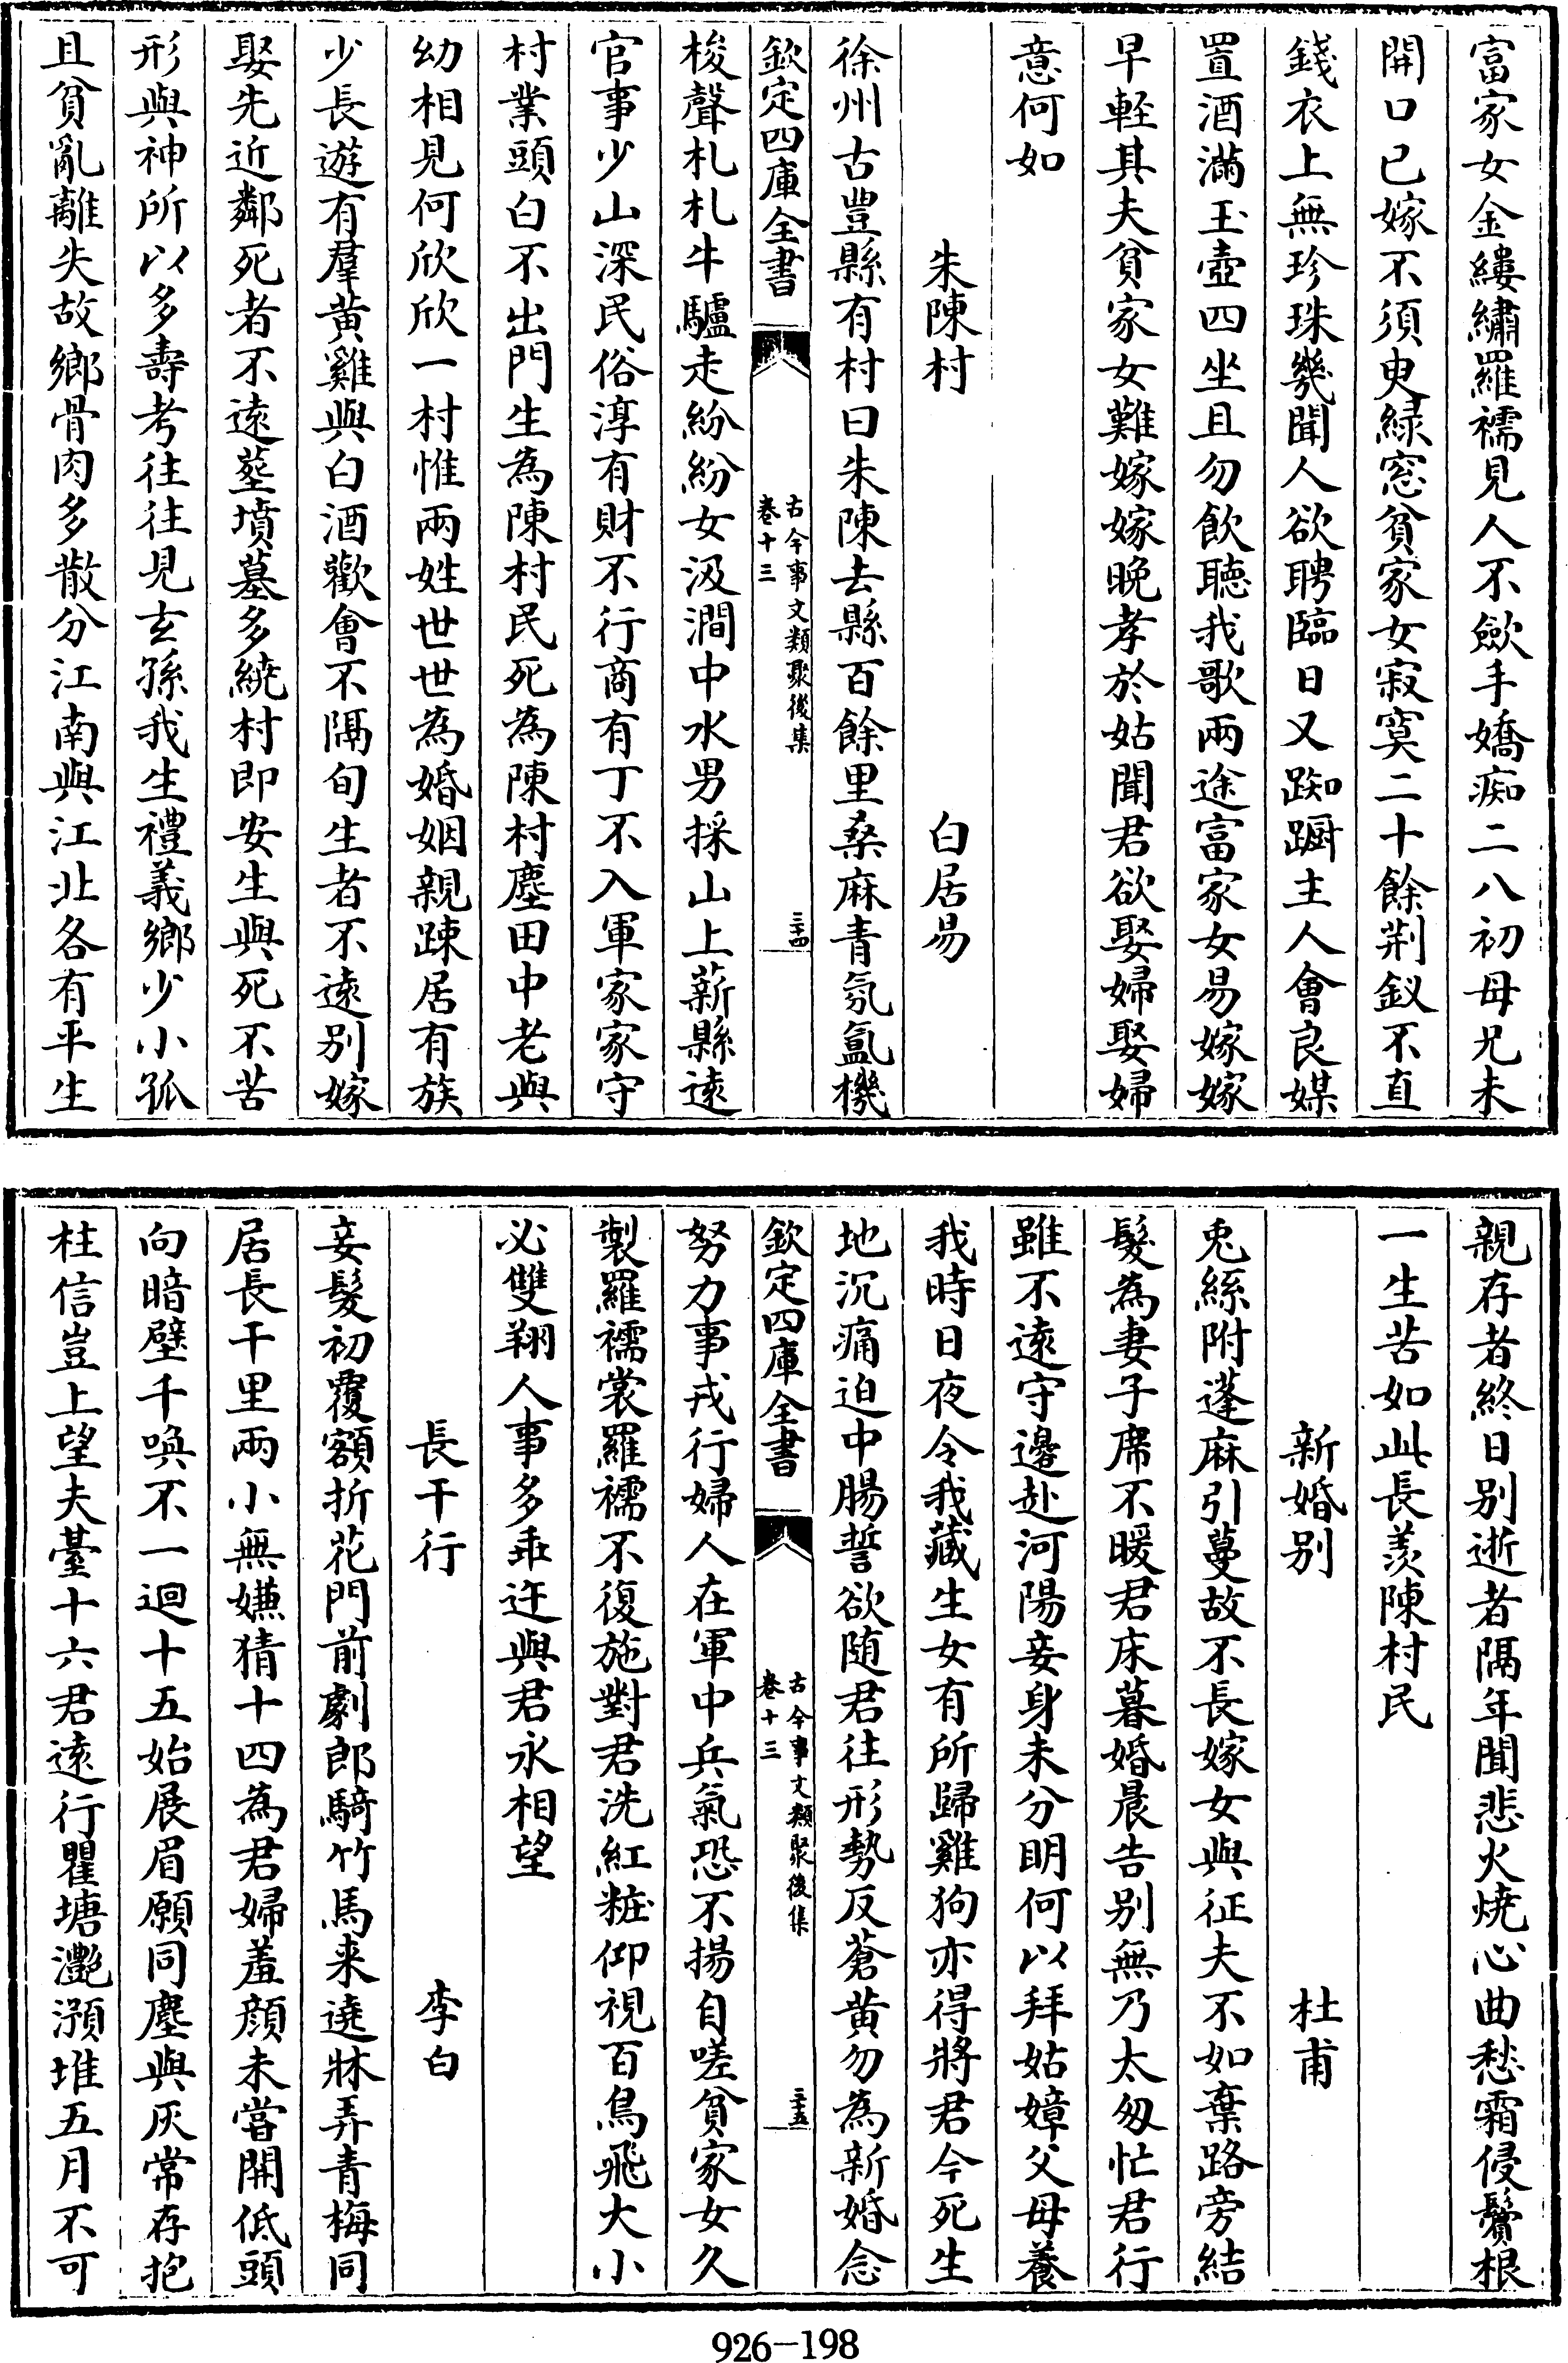 富家女金縷繡羅襦見人不歛手嬌痴二八初母兄未
開口已嫁不須臾緑窓貧家女寂寞二十餘荆釵不直
錢衣上無珍珠幾聞人欲聘臨日又踟蹰主人會良媒
置酒滿玉壺四坐且勿飲聴我歌兩途富家女易嫁嫁
早輕其夫貧家女難嫁嫁晚孝於姑聞君欲娶婦娶婦
意何如
朱陳村 白居易
徐州古豐縣有村曰朱陳去縣百餘里桑麻青氛氲機
欽定四庫全書 古今事文類聚後集 卷十三 三十四
梭聲札札牛驢走紛紛女汲澗中水男採山上薪縣遠
官事少山深民俗淳有財不行商有丁不入軍家家守
村業頭白不出門生為陳村民死為陳村塵田中老與
幼相見何欣欣一村惟兩姓世世為婚姻親踈居有族
少長遊有羣黄雞與白酒歡會不隔旬生者不遠别嫁
娶先近鄰死者不遠塟墳墓多繞村即安生與死不苦
形與神所以多壽考往往見玄孫我生禮義鄉少小孤
且貧亂離失故鄉骨肉多散分江南與江北各有平生
親存者終日别逝者隔年聞悲火燒心曲愁霜侵鬢根
一生苦如此長羨陳村民
新婚别 杜甫
兎絲附蓬麻引蔓故不長嫁女與征夫不如棄路旁結
髮為妻子席不暖君床暮婚晨告别無乃太匆忙君行
雖不遠守邊赴河陽妾身未分明何以拜姑嫜父母養
我時日夜令我藏生女有所歸雞狗亦得將君今死生
地沉痛迫中腸誓欲随君往形勢反蒼黄勿為新婚念
欽定四庫全書 古今事文類聚後集 卷十三 三十五
努力事戎行婦人在軍中兵氣恐不揚自嗟貧家女久
製羅襦裳羅襦不復施對君洗紅粧仰視百鳥飛大小
必雙翔人事多乖迕與君永相望
長干行 李白
妾髮初覆額折花門前劇郎騎竹馬来遶牀弄青梅同
居長干里兩小無嫌猜十四為君婦羞顔未嘗開低頭
向暗壁千喚不一迴十五始展眉願同塵與灰常存抱
柱信豈上望夫臺十六君遠行瞿塘灔澦堆五月不可
926-198